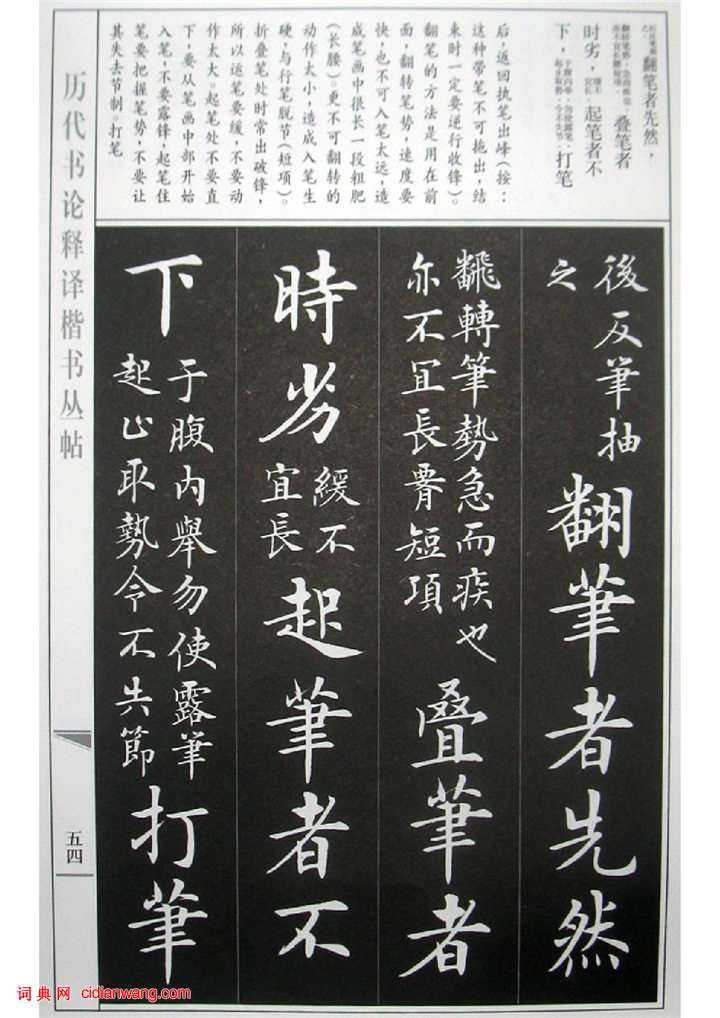 翻笔者先然，
翻转笔势，急而疾也，
亦不宜长腰短项。
叠笔者
时劣，
缓不
宜长。
起笔者不
下，
于腹内举，勿使露笔，
起止取势，令不失节。
打笔
后，返回执笔出峰（按：
这种带笔不可拖出，结
束时一定要逆行收锋）。
翻笔的方法是用在前
面，翻转笔势，速度要
快，也不可入笔太远，造
成笔画中很长一段粗肥
（长腰）。更不可翻转的
动作太小，造成入笔生
硬，与行笔脱节（短项）。
折叠笔处时常出破锋，
所以运笔要缓，不要动
作太大。起笔处不要直
下，要从笔画中部开始
入笔，不要露锋，起笔住
笔要把握笔势，不要让
其失去节制。打笔
後反筆抽
之
翻筆者先然
飜轉筆勢急而疾也
亦不冝長䏿短項
叠筆者
時劣
緩不
宜長
起筆者不
下
于腹内舉勿使露筆
起止取勢令不失節
打筆
历代书论释译楷书丛帖
五四
词典网 cidianwang.com